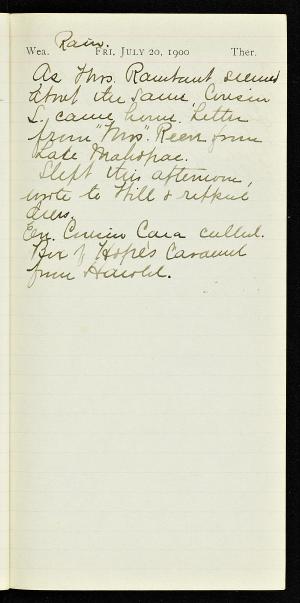 Rain.
Wea. FRI. JULY 20, 1900 Ther.
As Mrs. Rambaut seemed
about the same, Cousin
L. came home. Letter
from "Mrs" Reen from
Lake Mahopac.
Slept this afternoon,
wrote to Will &
dress.
Ev. Cousin Cara called.
Box of Hope's Caramel
from Harold.